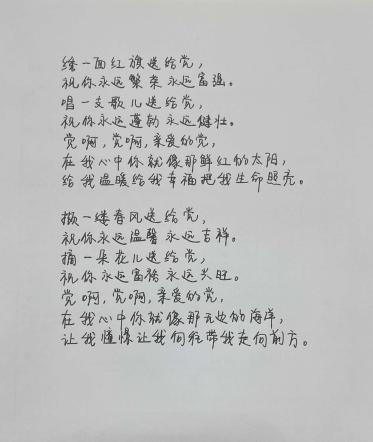 绘一面红旗送给党,
祝你永远繁荣永远富强。
唱一支歌儿送给党,
祝你永远蓬勃永远健壮。
党啊,党啊,亲爱的党,
在我心中你就像那鲜红的太阳,
给我温暖给我幸福把我生命照亮。
撷一缕春风送给党,
祝你永远温馨永远吉祥。
摘一朵花儿送给党,
祝你永远富裕永远兴旺。
党啊,党啊,亲爱的党,
在我心中你就像那无边的海洋,
让我憧憬让我向往带我走向前方。